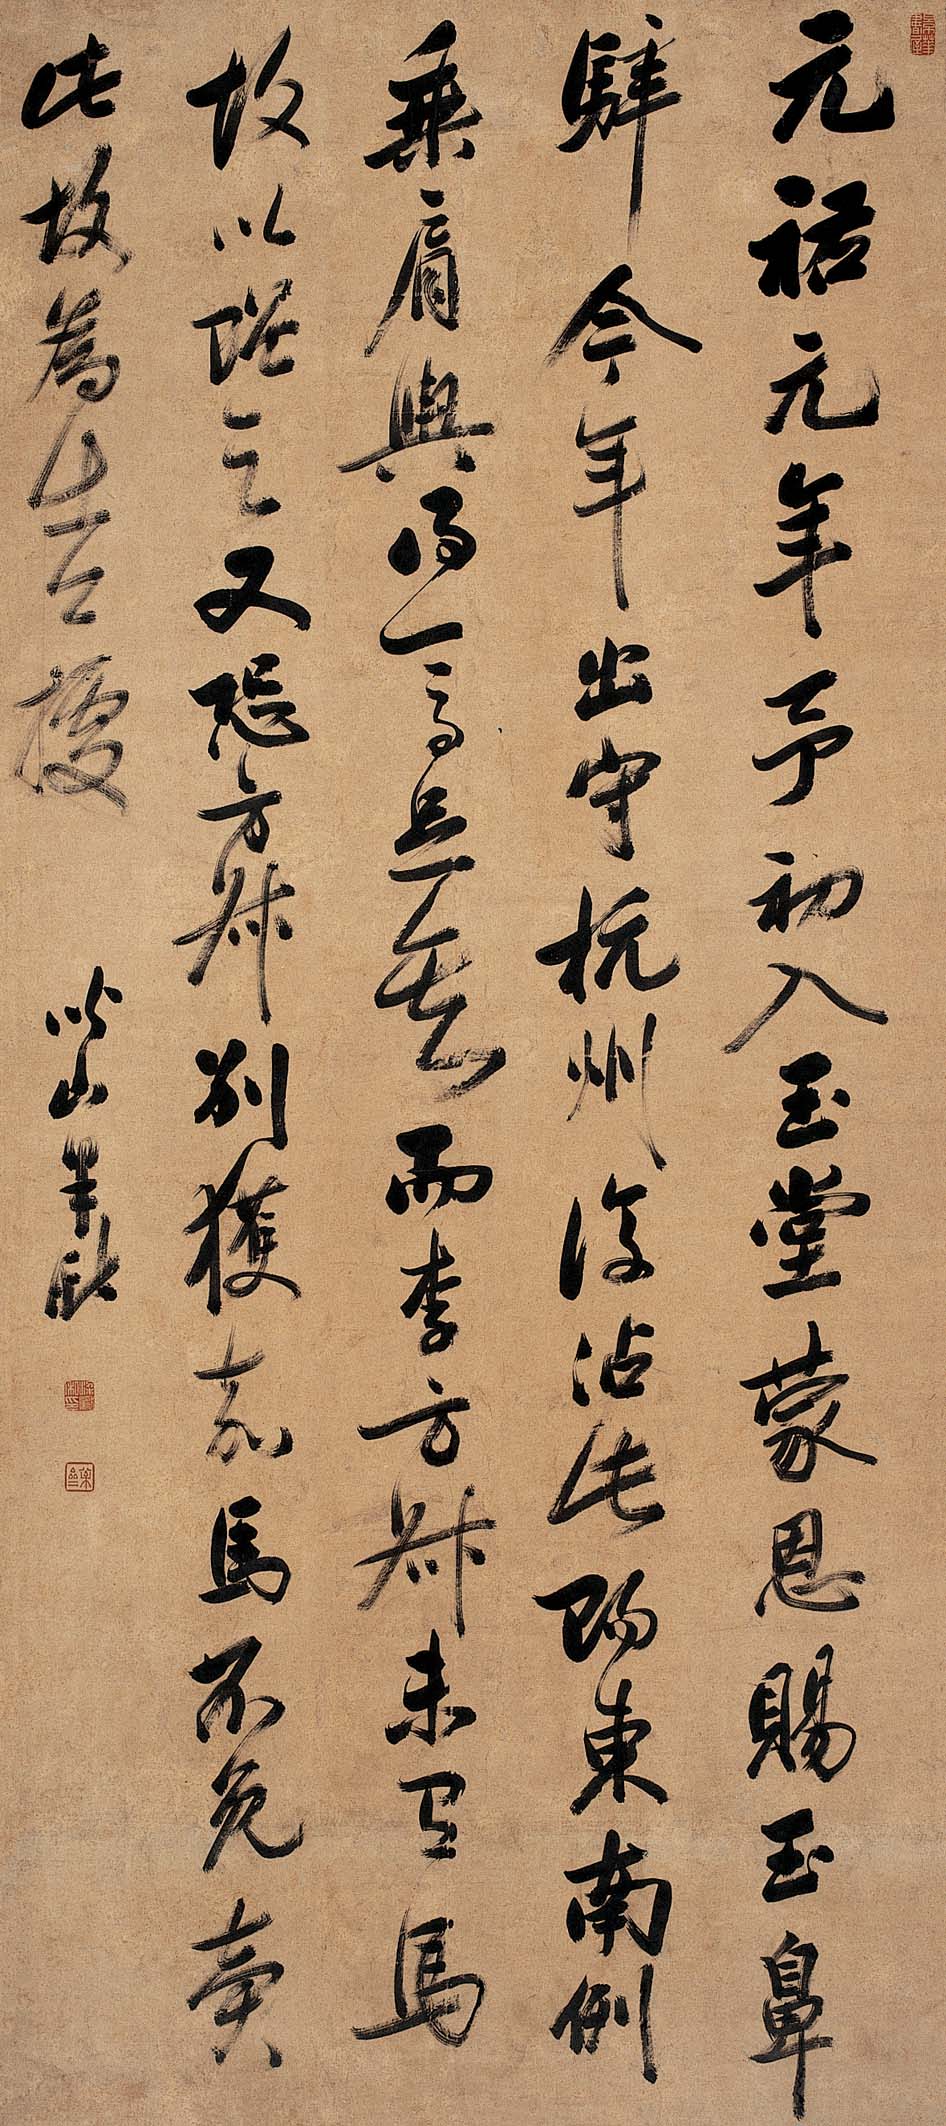 元祐元年予初入玉堂蒙恩賜玉鼻
騂今年出守杭州復沾此賜東南例
乘肩輿得一馬足矣而李方叔未有馬
故以贈之又恐方叔別獲嘉馬不免賣
此故為據